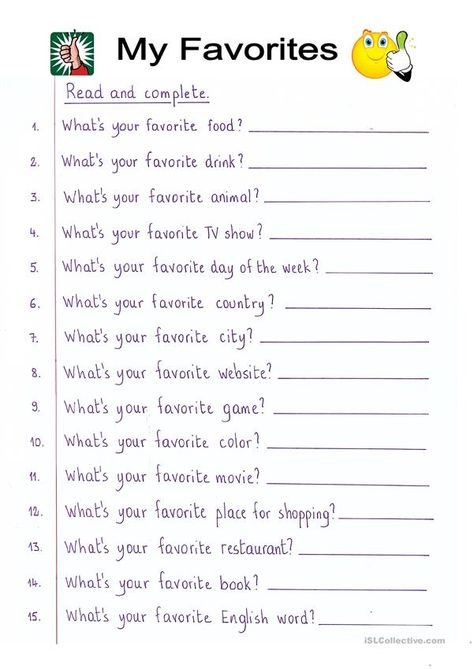 My Favorites
Read and complete.
1. What's your favorite food?
2. What's your favorite drink?
3. What's your favorite animal?
4. What's your favorite TV show?
5. What's your favorite day of the week?
6. What's your favorite country?
7. What's your favorite city?
8. What's your favorite website?
9. What's your favorite game?
10. What's your favorite color?
11. What's your favorite movie?
12. What's your favorite place for shopping?
13. What's your favorite restaurant?
14. What's your favorite book?
15. What's your favorite English word?
iSLCollective.com